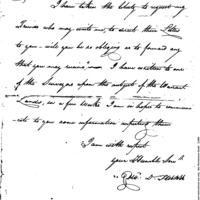 I have taken the liberty to request my
friends who may write me, to direct their Letters
to you. will you be so obliging as to forward any
that you may receive. I have written to one
of the Surveyors upon the subject of the Warrant
Lands, in a few weeks I am in hopes to commun-
icate to you some information respecting them
I am with respect
your Humble Serv